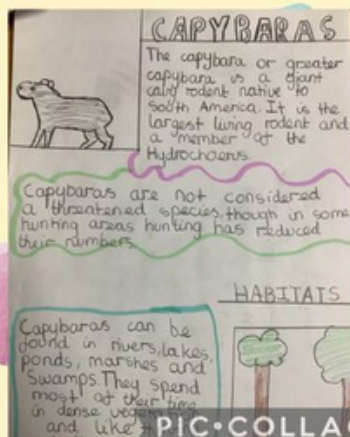 CAPYBARAS
The capybara or greater
capybara is a giant
cavy rodent native to
South America. It is the
largest living rodent and
a member of the
Hydrochoerus.
Capybaras are not considered
a threatened species, though in some
hunting areas hunting has reduced
their numbers.
HABITATS
Capybaras can be
found in rivers, lakes,
ponds, marshes and
Swamps. They spend
most of their time
in dense
and like
PIC•COLLA